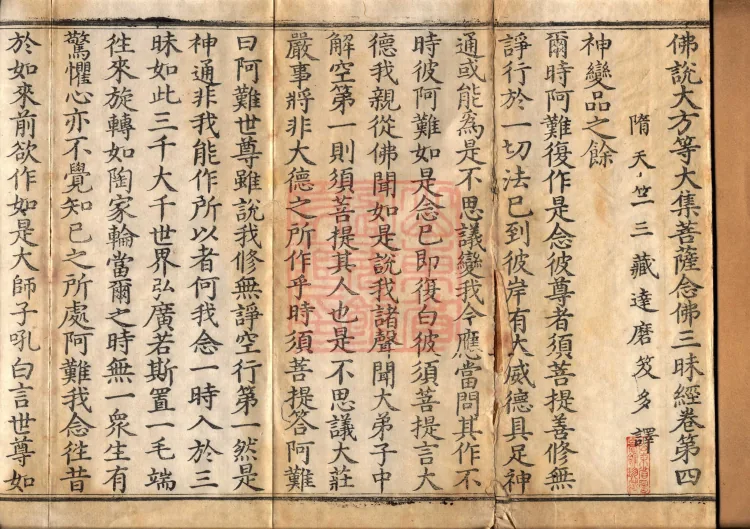 佛說大方等大集菩薩念佛三昧經卷第四
隋天竺三藏達磨笈多譯
神變品之餘
爾時阿難復作是念彼尊者須菩提善修無
諍行於一切法已到彼岸有大威德具足神
通或能為是不思議變我今應當問其作不
時彼阿難如是念已即復白彼須菩提言大
德我親從佛聞如是說我諸聲聞大弟子中
解空第一則須菩提其人也是不思議大莊
嚴事將非大德之所作乎時須菩提答阿難
曰阿難世尊雖說我修無諍空行第一然是
神通非我能作所以者何我念一時入於三
昧如此三千大千世界弘廣若斯置一毛端
往來旋轉如陶家輪當爾之時無一衆生有
驚懼心亦不覺知已之所處阿難我念往昔
於如來前欲作如是大師子吼白言世尊如